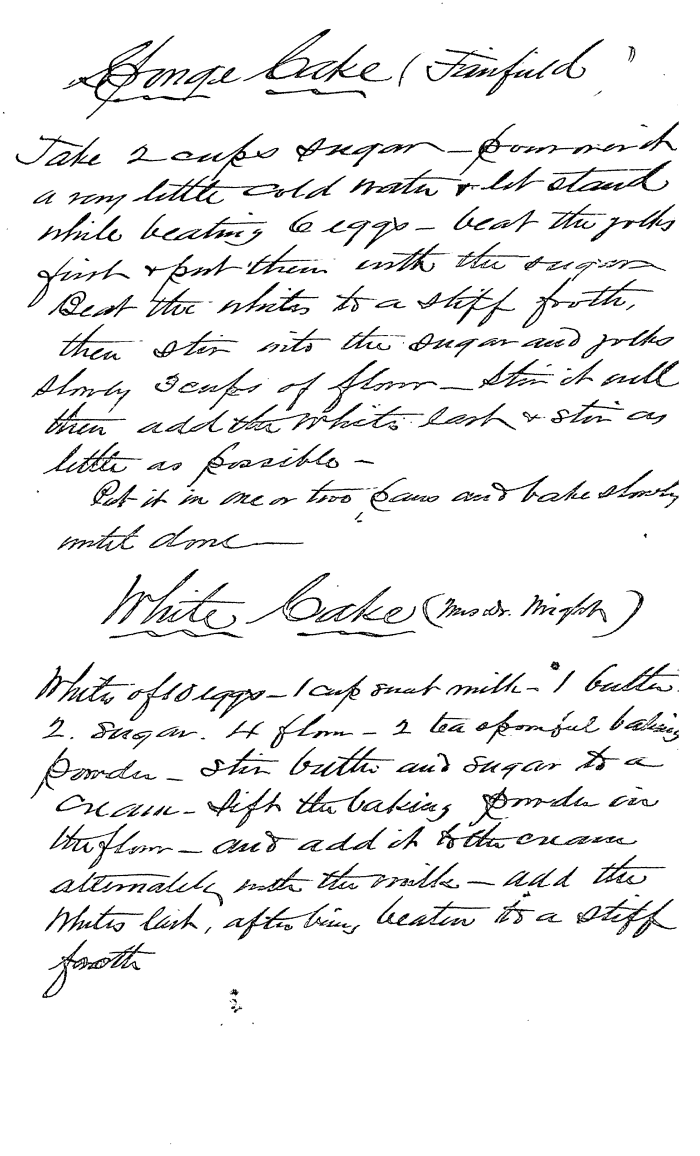 Sponge Cake (Fairfield)
Take 2 cups sugar – pour over it
a very little cold water & let stand
while beating 6 eggs – beat the yolks
first & put them with the sugar
Beat the whites to a stiff froth,
then stir into the sugar and yolks
slowly 3 cups of flour – Stir it well
then add the whites last & stir as
little as possible –
Put it in one or two pans and bake slowly
until done —
White Cake (Mrs Dr. Wright)
Whites of 10 eggs – 1 cup sweet milk – 1 butter
2. sugar. 4 flour – 2 tea spoonful baking
powder – stir butter and sugar to a
cream – Sift the baking powder in
the flour – and add it to the cream
alternately with the milk – add the
whites last, after being beaten to a stiff
froth